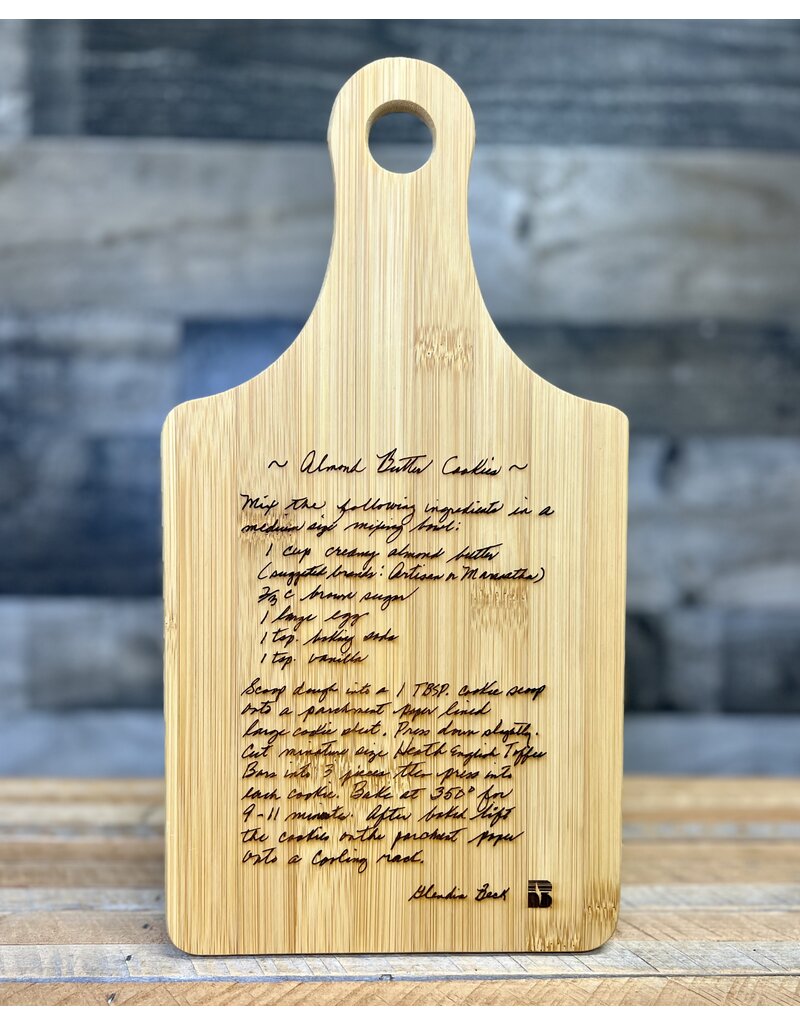 ~ Almond Butter Cookies ~
Mix the following ingredients in a
medium size mixing bowl:
1 cup creamy almond butter
(suggested brands: Artisan or Maranatha)
2/3 c brown sugar
1 large egg
1 tsp. baking soda
1 tsp. vanilla
Scoop dough into a 1 TBSP. cookie scoop
onto a parchment paper lined
large cookie sheet. Press down slightly.
Cut miniature size Heath English Toffee
Bars into 3 pieces then press into
each cookie. Bake at 350° for
9-11 minutes. After baked lift
the cookies on the parchment paper
onto a cooling rack.
Glendia Beck